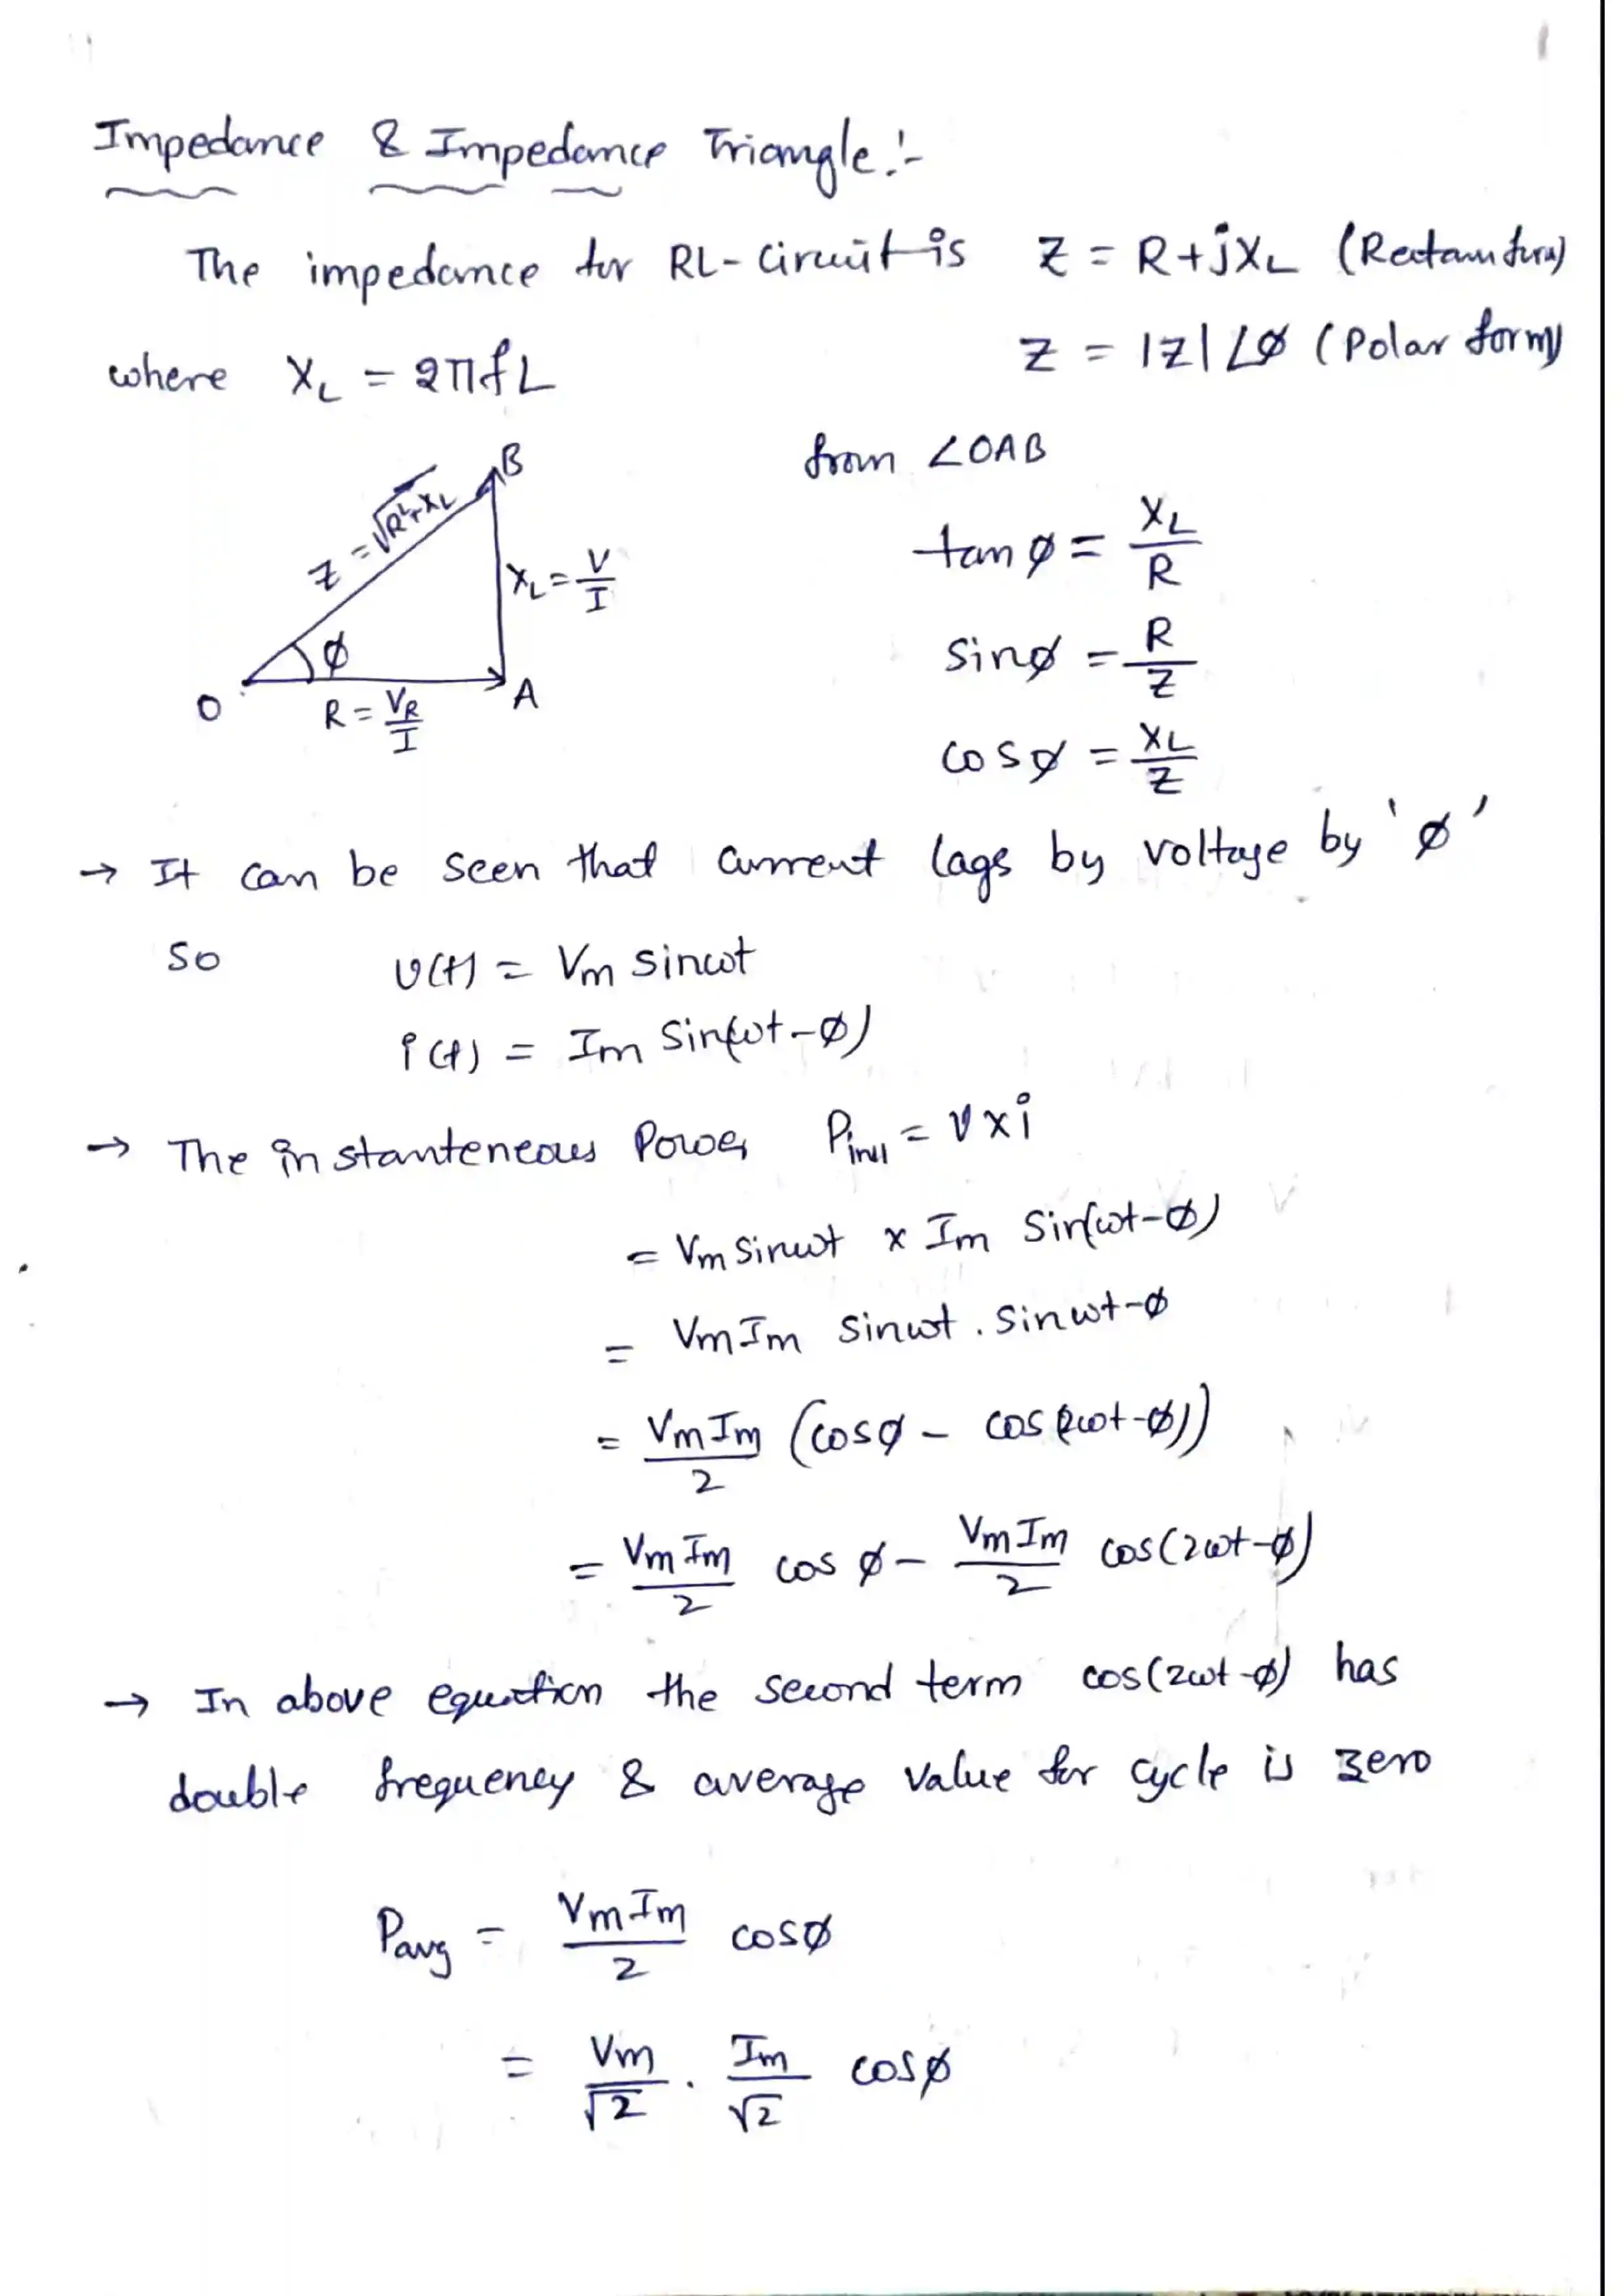 Impedance & Impedance Triangle :-
The impedance for RL- Circuit is Z = R+jXL (Rectan form)
where XL = 2πfL Z = |Z| ∠φ (Polar form)
from ∠OAB
B
Z = √R²+XL
XL = V/I
φ
O
A
R = VR/I
tan φ = XL/R
sin φ = R/Z
cos φ = XL/Z
→ It can be seen that current lags by voltage by 'φ'
so v(t) = Vm sinωt
i(t) = Im Sin(ωt-φ)
→ The instanteneous Power Pins = V x i
= Vm Sinωt x Im Sin(ωt-φ)
= VmIm sinωt . sin ωt-φ
= VmIm/2 (cosφ - cos(2ωt-φ))
= VmIm/2 cos φ - VmIm/2 cos(2ωt-φ)
→ In above equation the second term cos(2ωt-φ) has
double frequency & average value for cycle is zero
Pavg = VmIm/2 cosφ
= Vm/√2 . Im/√2 cosφ